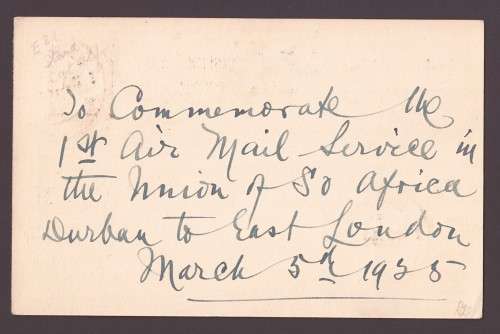 To Commemorate the
1st Air Mail Service in
the Union of So Africa
Durban to East London
March 5th 1925